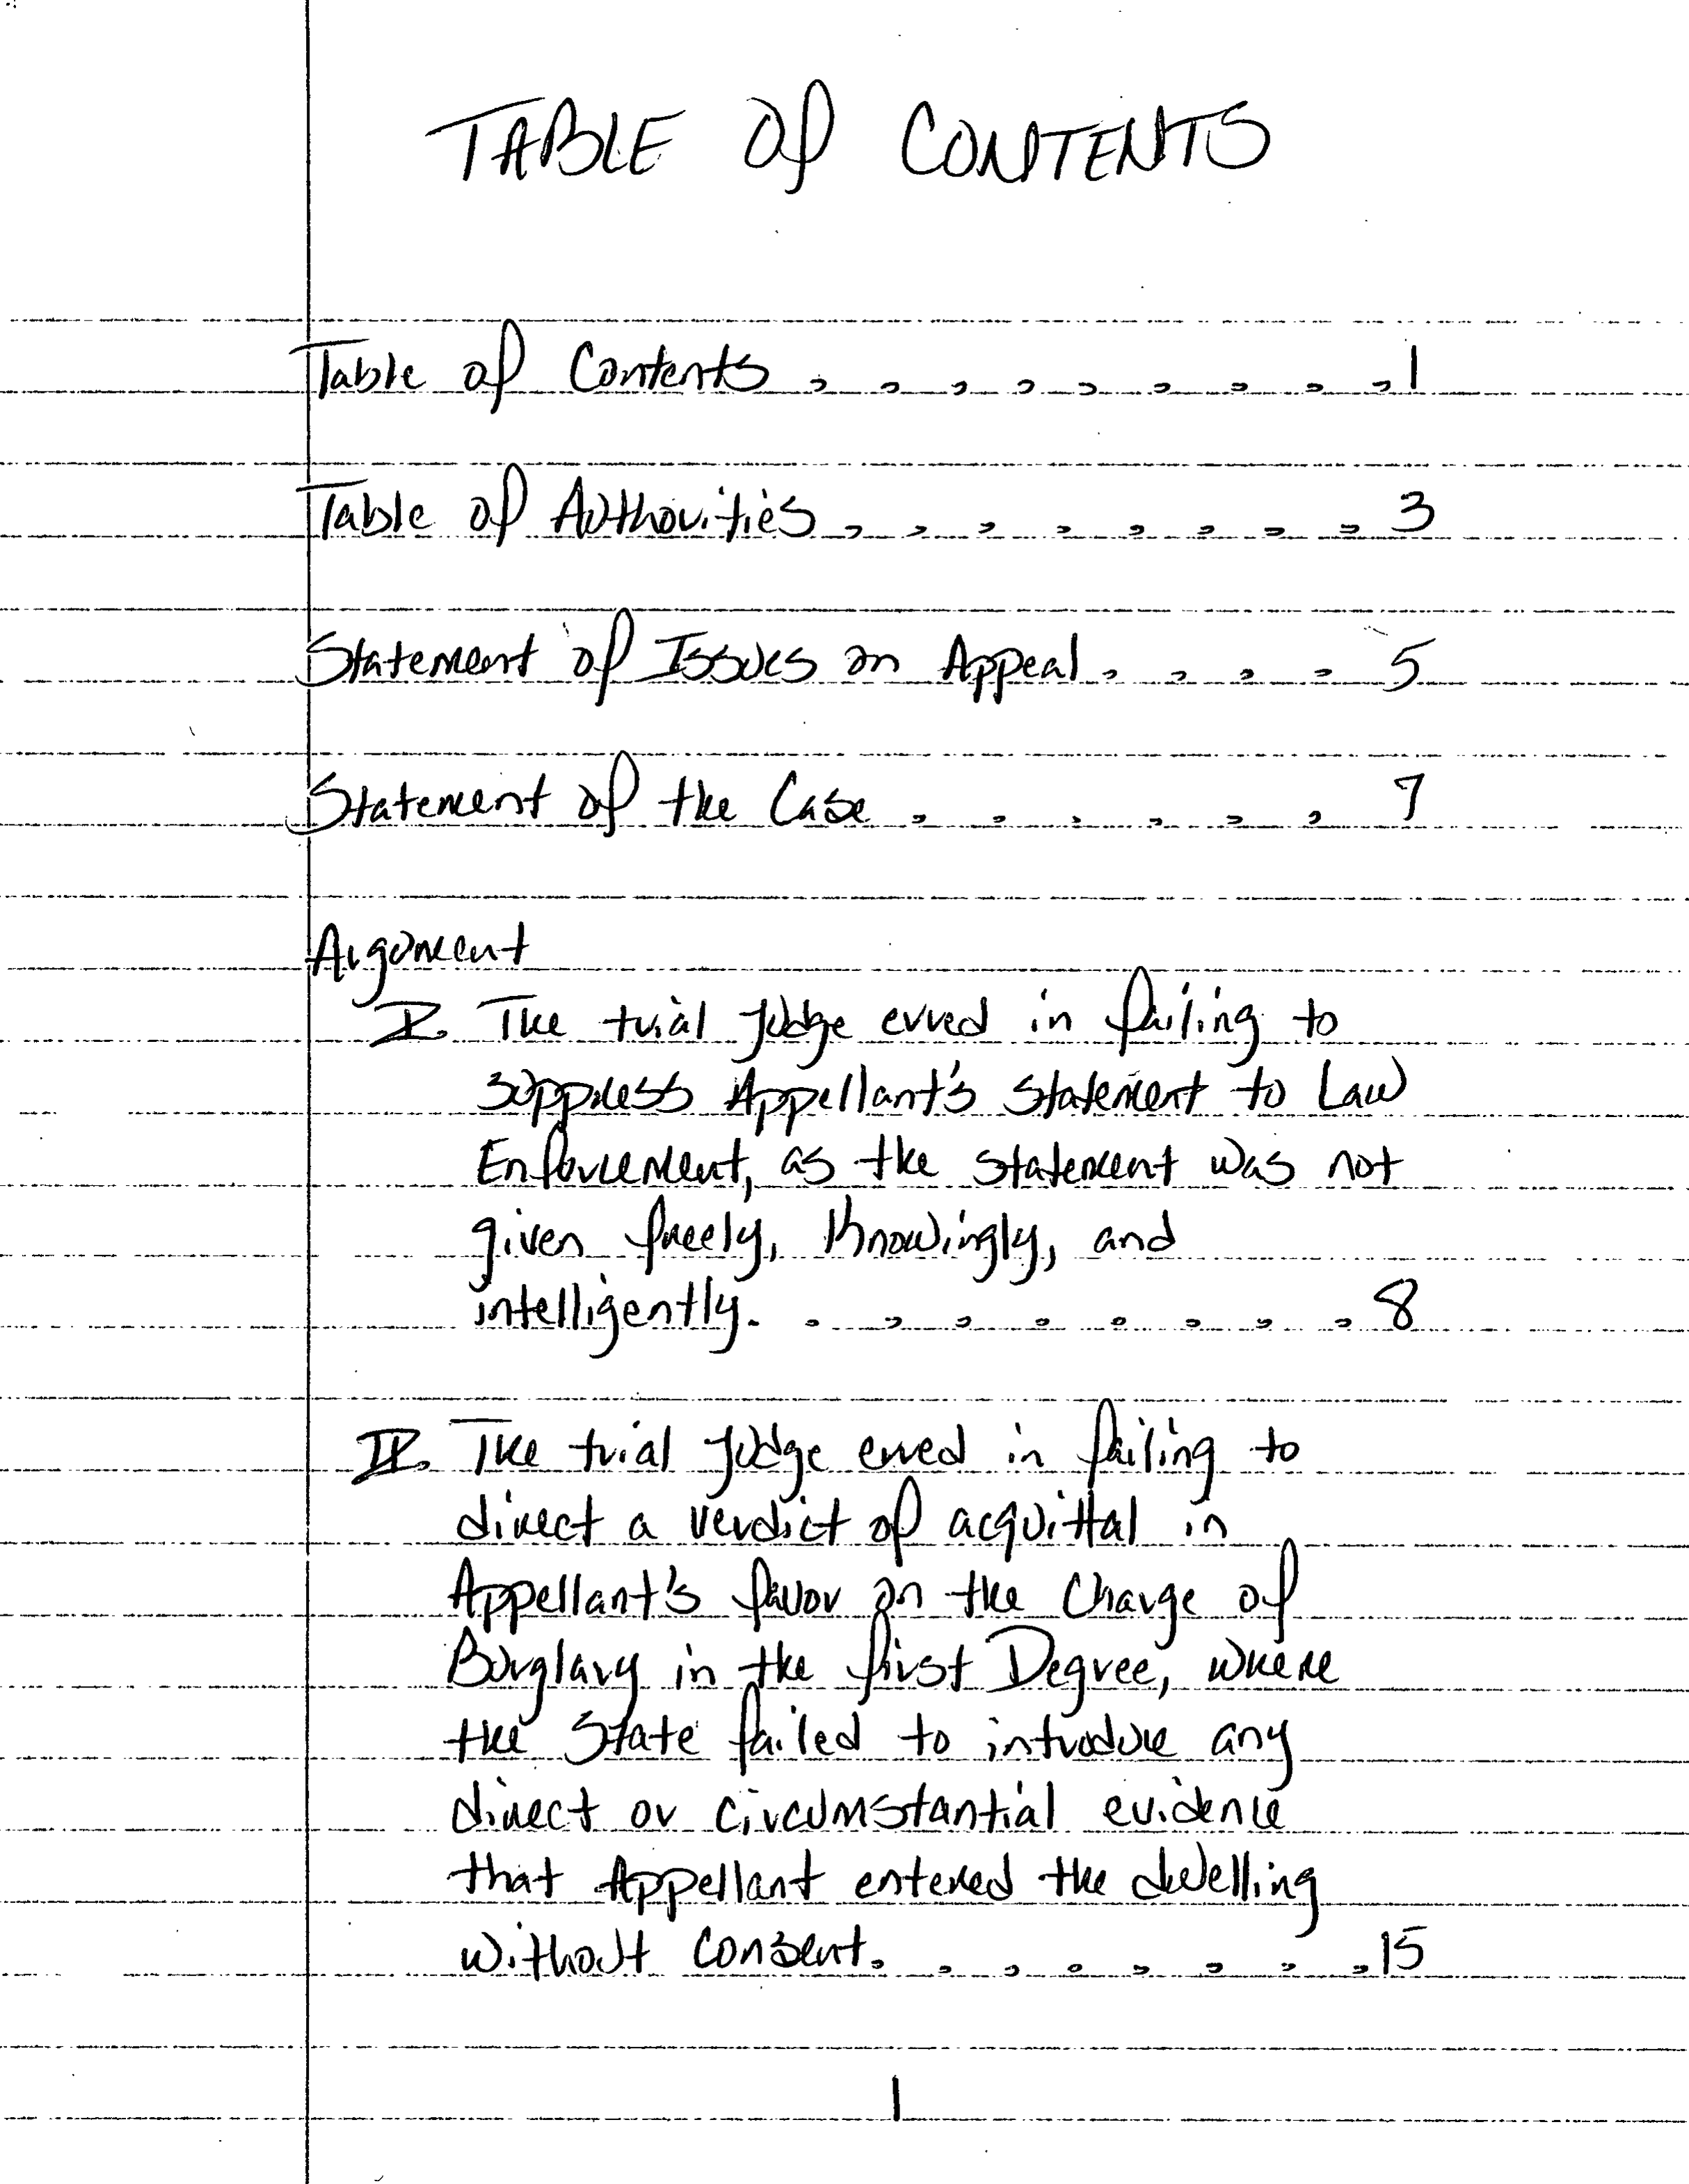 TABLE Of CONTENTS
Table of Contents . . . . . . . . . 1
Table of Authorities . . . . . . . . 3
Statement of Issues on Appeal . . . . 5
Statement of the Case . . . . . . 7
Argument
I. The trial Judge erred in failing to
suppress Appellant's statement to Law
Enforcement, as the statement was not
given freely, Knowingly, and
intelligently. . . . . . . . . 8
II. The trial Judge erred in failing to
direct a verdict of acquittal in
Appellant's favor on the Charge of
Burglary in the first Degree, where
the State failed to introduce any
direct or circumstantial evidence
that Appellant entered the dwelling
without consent. . . . . . . . 15
1